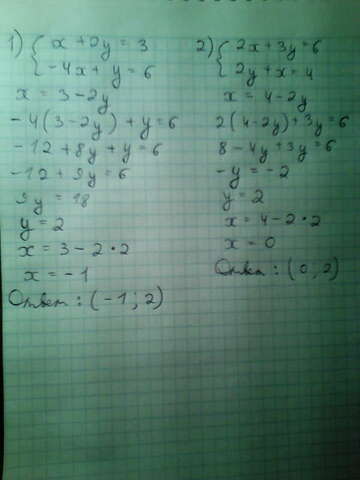 1) { x + 2y = 3
-4x + y = 6
x = 3 - 2y
-4(3 - 2y) + y = 6
-12 + 8y + y = 6
-12 + 9y = 6
9y = 18
y = 2
x = 3 - 2 • 2
x = -1
Ответ: (-1; 2)
2) { 2x + 3y = 6
2y + x = 4
x = 4 - 2y
2(4 - 2y) + 3y = 6
8 - 4y + 3y = 6
-y = -2
y = 2
x = 4 - 2 • 2
x = 0
Ответ: (0; 2)